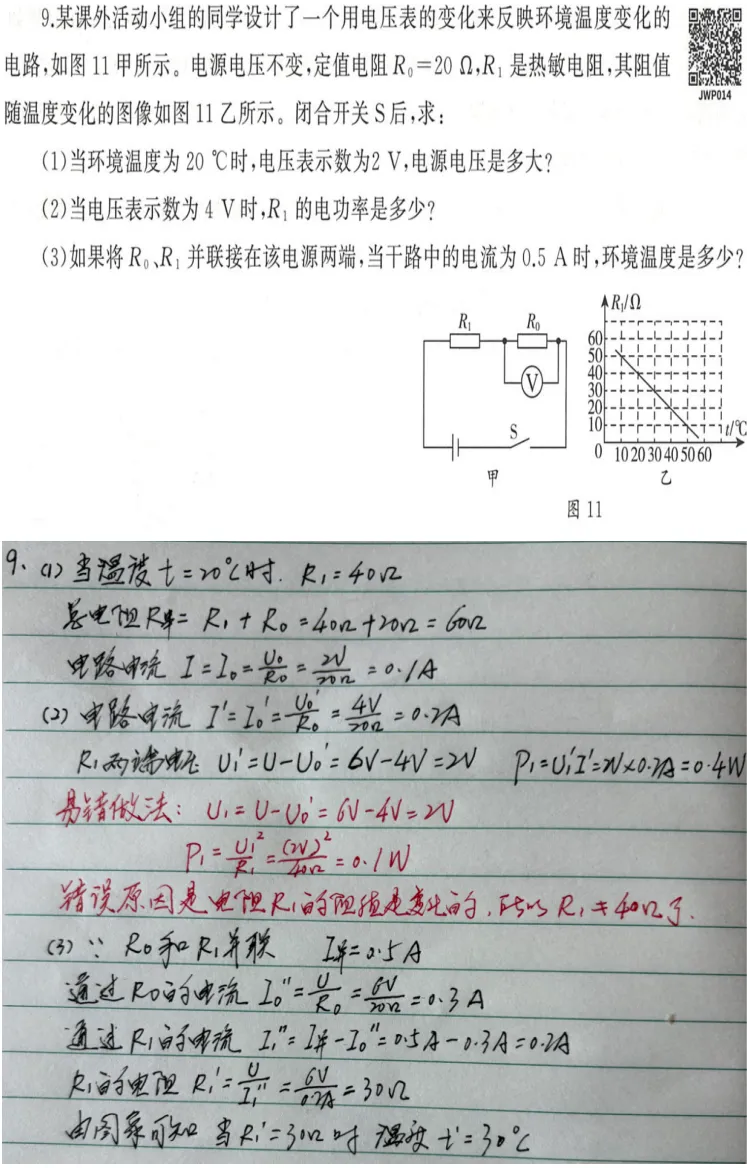 9.某课外活动小组的同学设计了一个用电压表的变化来反映环境温度变化的
电路,如图 11 甲所示。电源电压不变,定值电阻 R₀=20 Ω,R₁ 是热敏电阻,其阻值
随温度变化的图像如图 11 乙所示。闭合开关 S 后,求:
JWP014
(1)当环境温度为 20 ℃时,电压表示数为2 V,电源电压是多大?
(2)当电压表示数为 4 V 时,R₁ 的电功率是多少?
(3)如果将 R₀、R₁ 并联接在该电源两端,当干路中的电流为 0.5 A 时,环境温度是多少?
R₁ R₀
V
S
甲
R₁/Ω
60
50
40
30
20
10
0 10 20 30 40 50 60
t/℃
乙
图 11
9、(1) 当温度 t=20℃时. R₁=40Ω
总电阻R串= R₁+R₀=40Ω+20Ω=60Ω
电路电流 I=I₀=U₀/R₀=2V/20Ω=0.1A
(2) 电路电流 I'=I₀'=U₀'/R₀=4V/20Ω=0.2A
R₁两端电压 U₁'=U-U₀'=6V-4V=2V P₁=U₁'I'=2V×0.2A=0.4W
易错做法: U₁=U-U₀'=6V-4V=2V
P₁=U₁²/R₁=(2V)²/40Ω=0.1W
错误原因是电阻R₁的阻值是变化的,所以R₁≠40Ω了.
(3) ∵ R₀和R₁并联 I并=0.5A
通过R₀的电流 I₀''=U/R₀=6V/20Ω=0.3A
通过R₁的电流 I₁''=I并-I₀''=0.5A-0.3A=0.2A
R₁的电阻 R₁'=U/I₁''=6V/0.2A=30Ω
由图象可知 当R₁'=30Ω时 温度 t'=30℃